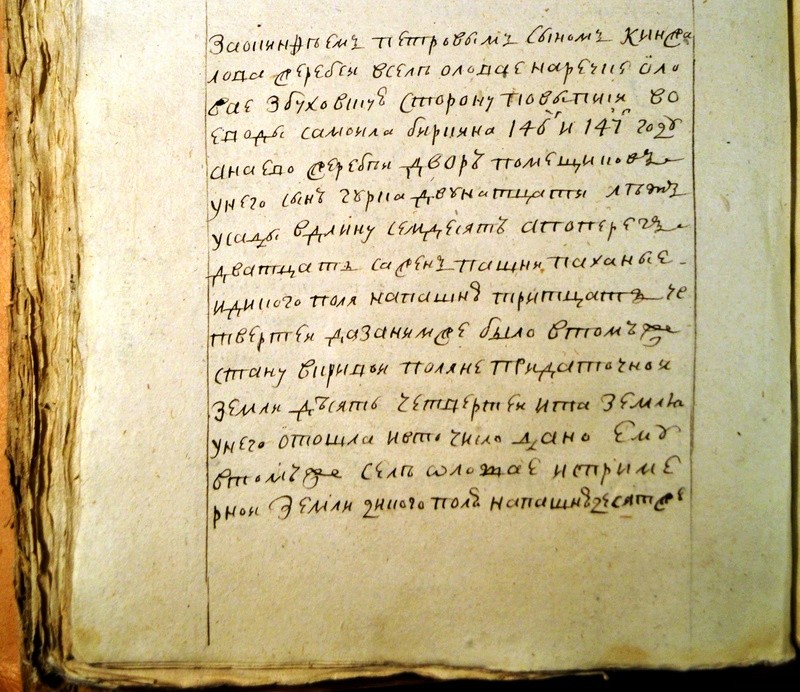 За онинѳѣемъ петровымъ сыномъ кинже
лова жеребеи вселѣ олодае наречке оло
вае збуховшуъ сторону повыпии во
еводы самоила бирнина 146 и 147 году
анаево жеребьи дворъ помещиковъ
унего сынъ гурка двунатцати лѣтъ
усады вдлину семдесятъ апоперегъ
дватцать сажен пашни паханые
идикого поля напашню тритцать че
твертеи дазанимже было втомъ же
стану вкривои поляне придаточнои
земли дѣсять четвертеи ита земля
унего отошла ивто число дано ему
втомъ же селѣ ѡлодае исприме
рнои земли дикого поля напашню десятже